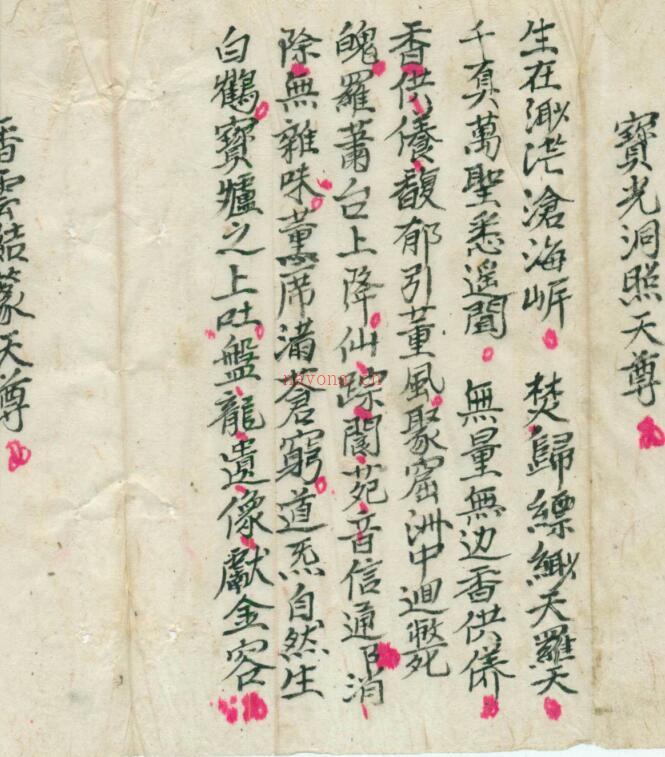 寶光洞照天尊
生在渺茫滄海岍 焚歸縹緲天羅天
千真萬聖悉遥聞 無量無边香供養
香供養馥郁引董風聚窟洲中迴斃死
魄羅蕭台上降仙踪閬苑音信通下消
除無雜味薰席滿蒼窮道炁自然生
白鶴寶爐之上吐盤龍遺像獻金容
香雲結篆天尊
nayona.cn